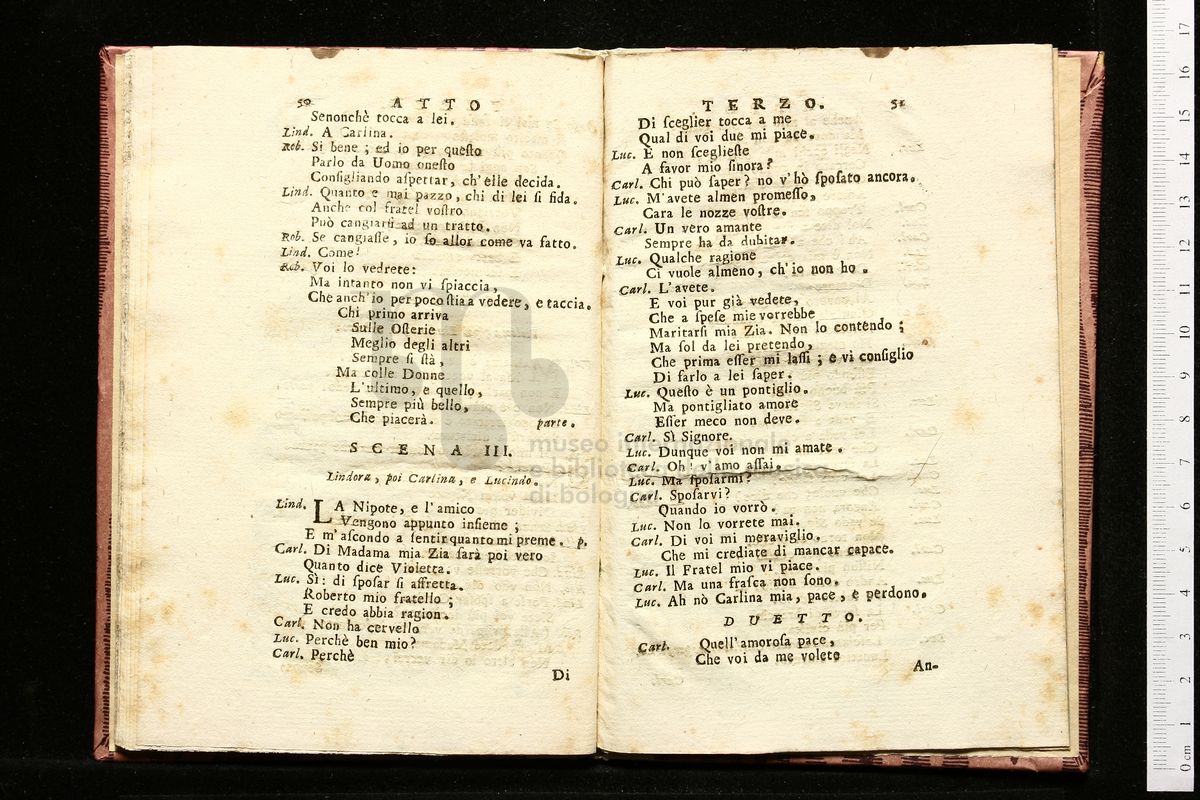 50 ATTO
Senonchè tocca a lei.
Lind. A Carlina.
Rob. Si bene ; ed io per queſto
Parlo da Uomo oneſto
Conſigliando aſpettar, ch'elle decida.
Lind. Quanto e mai pazzo, chi di lei ſi fida.
Anche col fratel voſtro
Può cangiarſi ad un tratto.
Rob. Se cangiaſſe, io ſo allor come va fatto.
Lind. Come!
Rob. Voi lo vedrete:
Ma intanto non vi ſpiaccia,
Che anch'io per poco ſtia a vedere, e taccia.
Chi primo arriva
Sulle Oſterie
Meglio degli altri
Sempre ſi ſtà,
Ma colle Donne
L'ultimo, e quello,
Sempre più bello,
Che piacerà. parte.
SCENA III.
Lindora, poi Carlina, e Lucindo.
Lind. LA Nipote, e l'amico
Vengono appunto inſieme ;
E m'aſcondo a ſentir quanto mi preme. p.
Carl. Di Madama mia Zia ſarà poi vero
Quanto dice Violetta.
Luc. Sì: di ſpoſar ſi affretta.
Roberto mio fratello ;
E credo abbia ragion.
Carl. Non ha cervello
Luc. Perchè ben mio?
Carl. Perchè
Di
TERZO. 51
Di ſceglier tocca a me
Qual di voi due mi piace.
Luc. E non ſceglieſte
A favor mio ſinora?
Carl. Chi può ſaper? no v'hò ſpoſato ancora.
Luc. M'avete almen promeſſo,
Cara le nozze voſtre.
Carl. Un vero amante
Sempre ha da dubitar.
Luc. Qualche ragione
Ci vuole almeno, ch'io non ho.
Carl. L'avete.
E voi pur già vedete,
Che a ſpeſe mie vorrebbe
Maritarſi mia Zia. Non lo contendo ;
Ma ſol da lei pretendo,
Che prima eſſer mi laſſi ; e vi conſiglio
Di farlo a lei ſaper.
Luc. Queſto è un pontiglio.
Ma pontigliato amore
Eſſer meco non deve.
Carl. Sì Signore.
Luc. Dunque voi non mi amate.
Carl. Oh! v'amo aſſai.
Luc. Ma ſpoſarmi?
Carl. Spoſarvi?
Quando io vorrò.
Luc. Non lo vorrete mai.
Carl. Di voi mi meraviglio.
Che mi crediate di mancar capace.
Luc. Il Fratel mio vi piace.
Carl. Ma una fraſca non ſono.
Luc. Ah nò Carlina mia, pace, e perdono.
DUETTO.
Carl. Quell'amoroſa pace,
Che voi da me volete
An-
museo internazionale
e biblioteca della musica
di bologna
0 cm 1 2 3 4 5 6 7 8 9 10 11 12 13 14 15 16 17